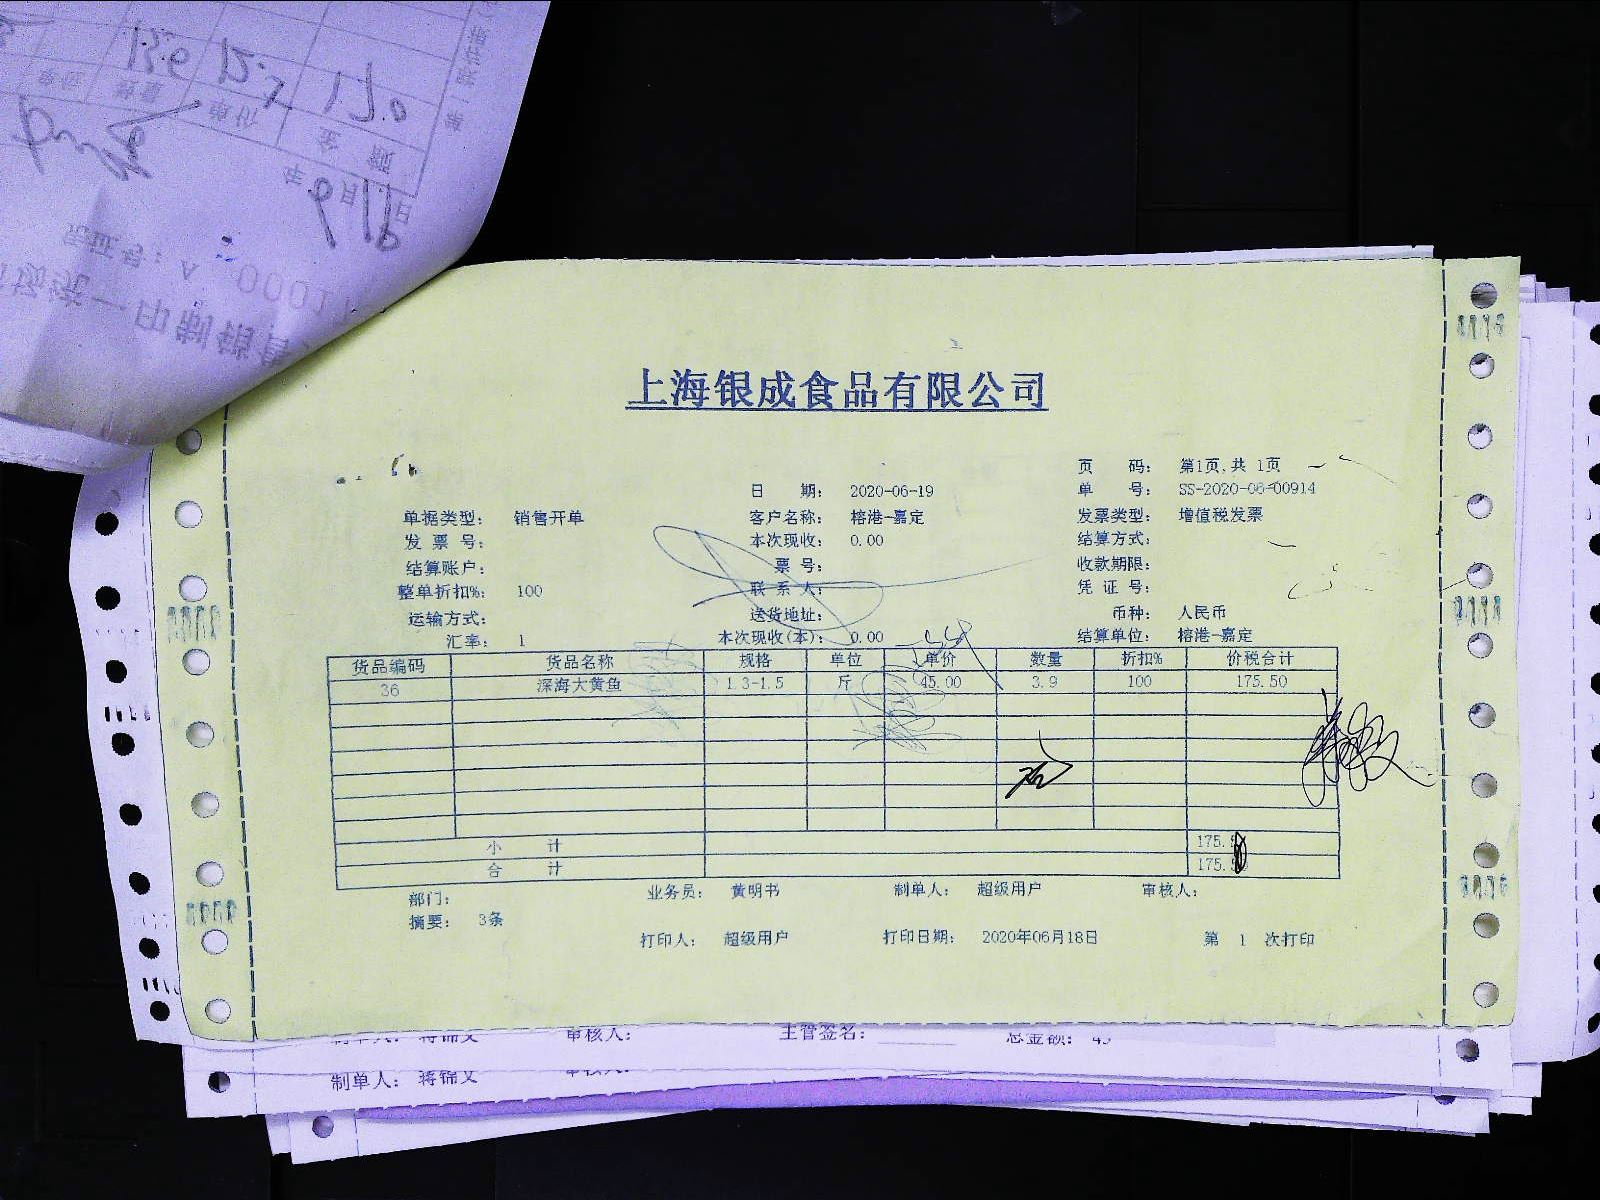 上海银成食品有限公司
页 码： 第1页,共 1页
日 期： 2020-06-19 单 号： SS-2020-06-00914
单据类型： 销售开单 客户名称： 榕港-嘉定 发票类型： 增值税发票
发 票 号： 本次现收： 0.00 结算方式：
结算账户： 票 号： 收款期限：
整单折扣%： 100 联 系 人： 凭 证 号：
运输方式： 送货地址： 币种： 人民币
汇率： 1 本次现收(本)： 0.00 结算单位： 榕港-嘉定
货品编码 货品名称 规格 单位 单价 数量 折扣% 价税合计
36 深海大黄鱼 1.3-1.5 斤 45.00 3.9 100 175.50
小 计 175.
合 计 175.
部门： 业务员： 黄明书 制单人： 超级用户 审核人：
摘要： 3条
打印人： 超级用户 打印日期： 2020年06月18日 第 1 次打印
审核人： 主管签名： 总金额：
制单人： 蒋锦文